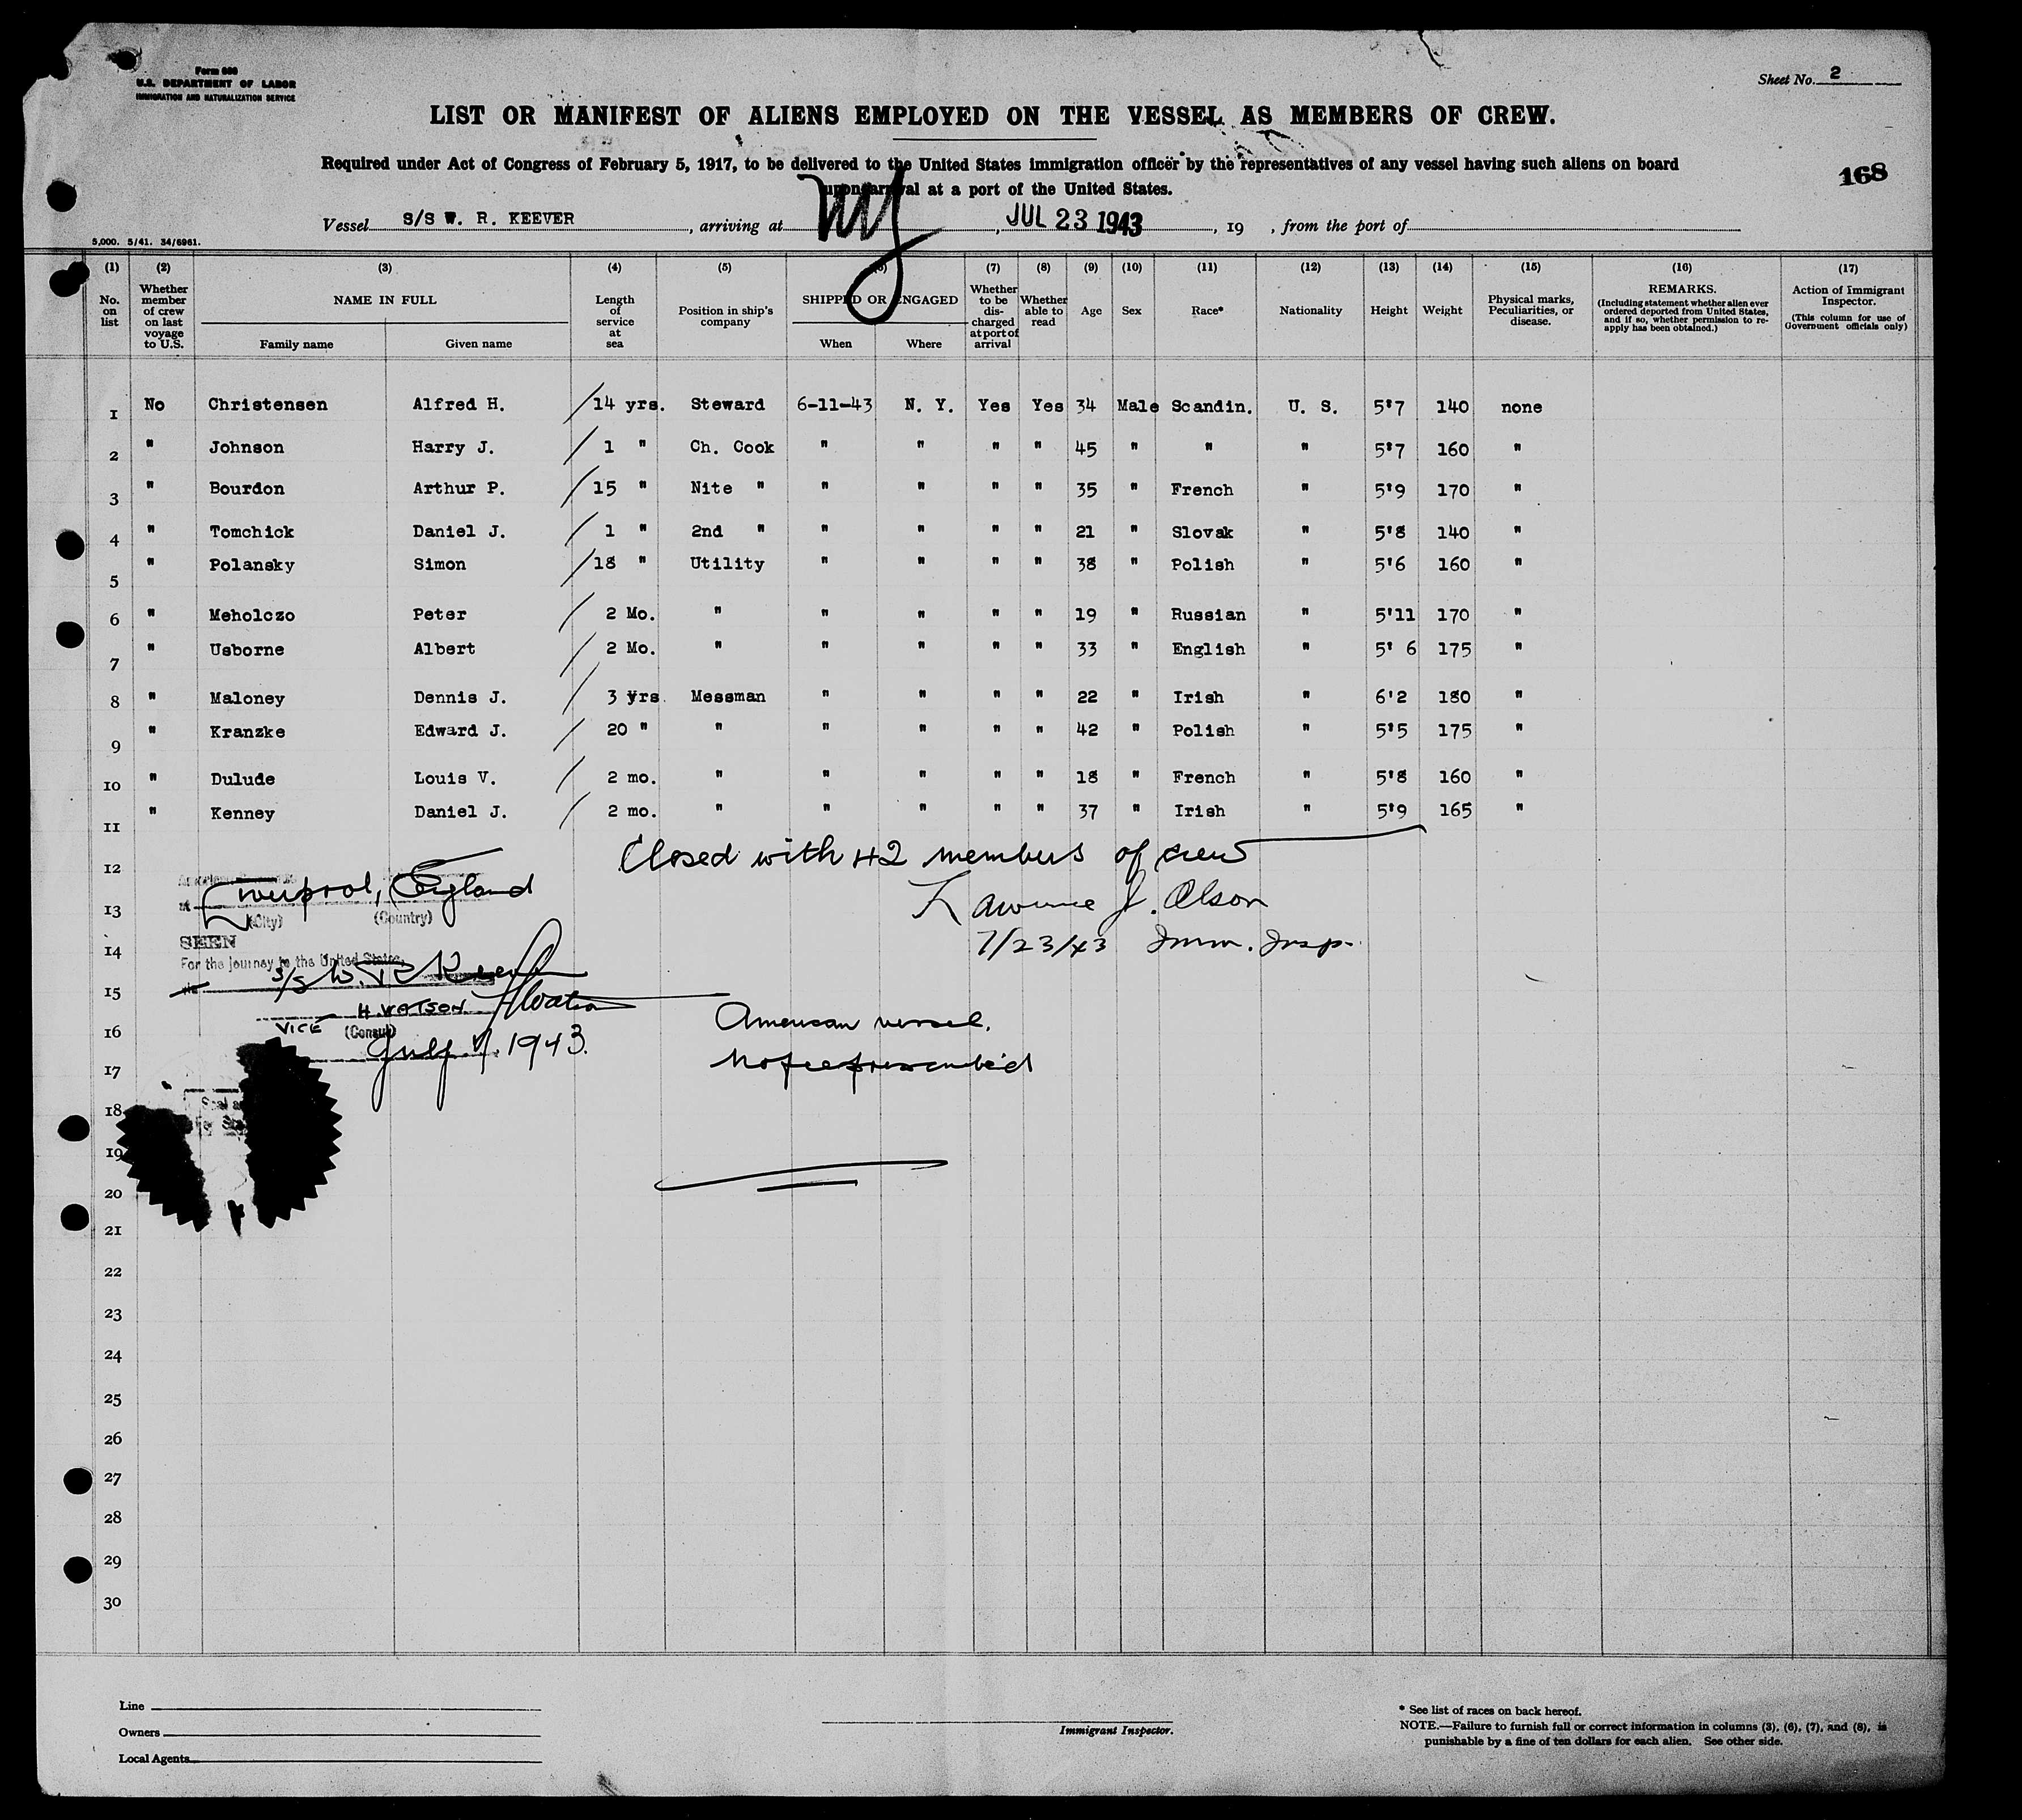 Form 680
U.S. DEPARTMENT OF LABOR
IMMIGRATION AND NATURALIZATION SERVICE
Sheet No. 2
LIST OR MANIFEST OF ALIENS EMPLOYED ON THE VESSEL AS MEMBERS OF CREW.
Required under Act of Congress of February 5, 1917, to be delivered to the United States immigration officer by the representatives of any vessel having such aliens on board
upon arrival at a port of the United States.
168
Vessel S/S W. R. KEEVER, arriving at NY, JUL 23 1943, 19 , from the port of
5,000. 5/41. 34/6961.
(1) (2) (3) (4) (5) (6) (7) (8) (9) (10) (11) (12) (13) (14) (15) (16) (17)
No. on list Whether member of crew on last voyage to U.S. NAME IN FULL Family name Given name Length of service at sea Position in ship's company SHIPPED OR ENGAGED When Where Whether to be discharged at port of arrival Whether able to read Age Sex Race* Nationality Height Weight Physical marks, Peculiarities, or disease. REMARKS. (Including statement whether alien ever ordered deported from United States, and if so, whether permission to re-apply has been obtained.) Action of Immigrant Inspector. (This column for use of Government officials only)
1 No Christensen Alfred H. / 14 yrs. Steward 6-11-43 N. Y. Yes Yes 34 Male Scandin. U. S. 5'7 140 none
2 " Johnson Harry J. / 1 " Ch. Cook " " " " 45 " " " 5'7 160 "
3 " Bourdon Arthur P. / 15 " Nite " " " " " 35 " French " 5'9 170 "
4 " Tomchick Daniel J. / 1 " 2nd " " " " " 21 " Slovak " 5'8 140 "
5 " Polansky Simon / 18 " Utility " " " " 38 " Polish " 5'6 160 "
6 " Meholczo Peter / 2 Mo. " " " " " 19 " Russian " 5'11 170 "
7 " Usborne Albert / 2 Mo. " " " " " 33 " English " 5' 6 175 "
8 " Maloney Dennis J. / 3 yrs Messman " " " " 22 " Irish " 6'2 180 "
9 " Kranzke Edward J. / 20 " " " " " " 42 " Polish " 5'5 175 "
10 " Dulude Louis V. / 2 mo. " " " " " 18 " French " 5'8 160 "
11 " Kenney Daniel J. / 2 mo. " " " " " 37 " Irish " 5'9 165 "
Closed with 42 members of crew
12
at Liverpool, England
Lawrence J. Olson
13
(City) (Country)
7/23/43 Imm. Insp.
14
SEEN
For the journey to the United States
S/S W. R Keever
15
H. WATSON HWatson
American vessel.
16
VICE (Consul)
July 7. 1943.
17
18
19
20
21
22
23
24
25
26
27
28
29
30
Line
Owners
Local Agents
Immigrant Inspector.
* See list of races on back hereof.
NOTE.—Failure to furnish full or correct information in columns (3), (6), (7), and (8), is
punishable by a fine of ten dollars for each alien. See other side.